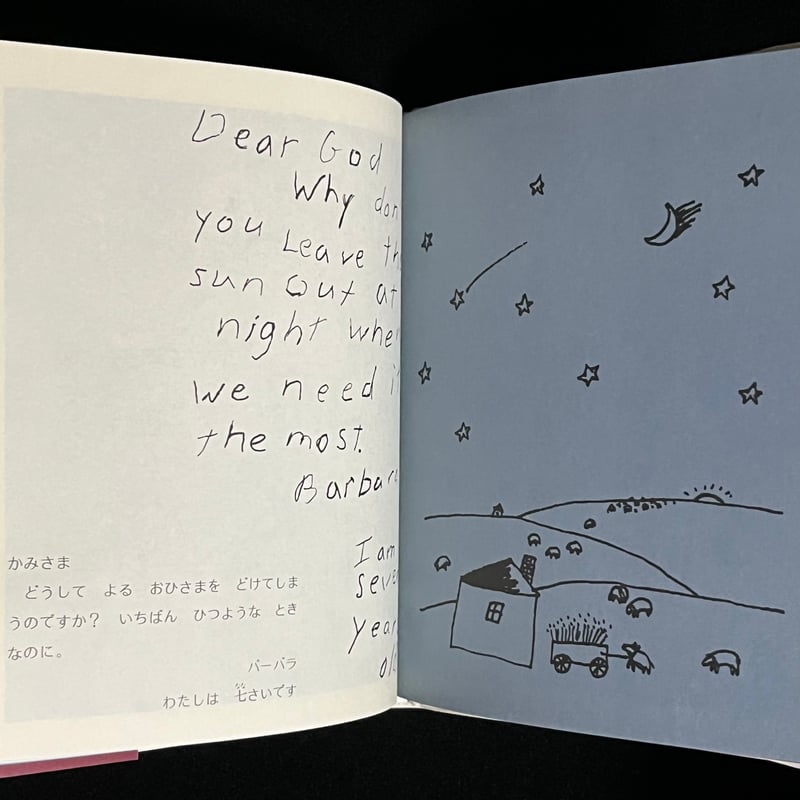 Dear God
Why don
you Leave th
sun out at
night whe
we need i
the most.
Barbar
I am
seve
year
ol
かみさま
どうして よる おひさまを どけてしま
うのですか？ いちばん ひつような とき
なのに。
バーバラ
わたしは 七さいです